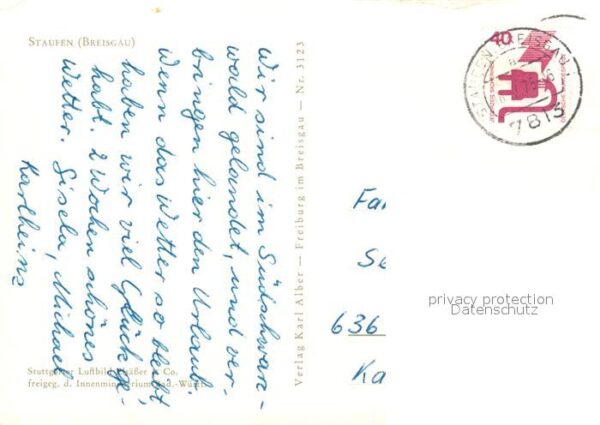 STAUFEN (BREISGAU)
Wir sind im Südschwarz-
wald gelandet, und ver-
bringen hier den Urlaub.
Wenn das Wetter so bleibt
haben wir viel Glück ge-
habt. 2 Wochen schönes
Wetter. Gisela, Michael
Karlheinz
Stuttgarter Luftbild Elsäßer & Co.
freigeg. d. Innenministerium Bad.-Württ.
Verlag Karl Alber — Freiburg im Breisgau — Nr. 3123
40
STAUFEN BREISGAU
7813
Fa
Se
636
Ka
privacy protection
Datenschutz